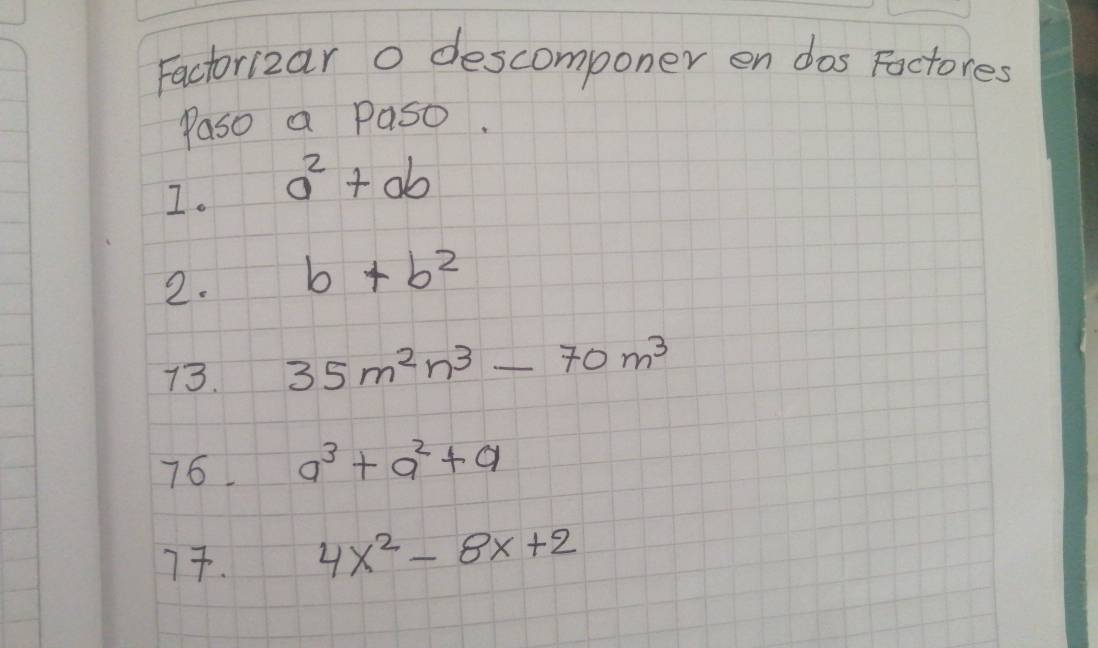 Factorizar o descomponer en dos Factores
Paso a Paso.
1. a² + ab
2. b + b²
13. 35m²n³ - 70m³
16. a³ + a² + a
17. 4x² - 8x + 2